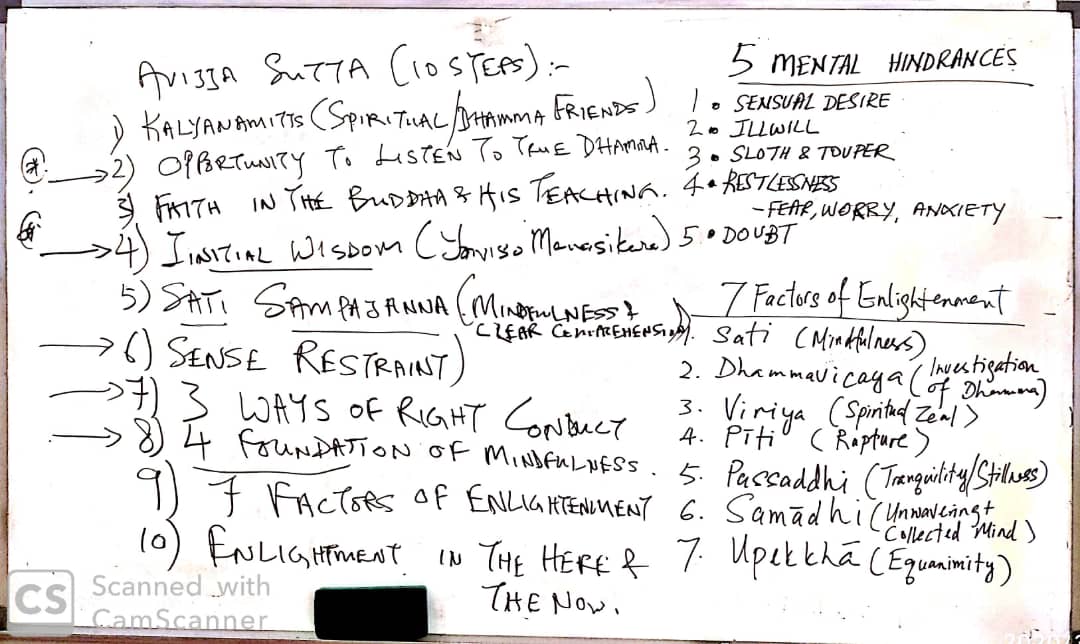 AVIJJA SUTTA (10 STEPS):-
1) KALYANAMITTS (SPIRITUAL/DHAMMA FRIENDS)
2) OPPORTUNITY TO LISTEN TO TRUE DHAMMA.
3) FAITH IN THE BUDDHA & HIS TEACHING.
4) INITIAL WISDOM (Yoniso Manasikara)
5) SATI SAMPAJANNA (MINDFULNESS &
CLEAR COMPREHENSION).
6) SENSE RESTRAINT)
7) 3 WAYS OF RIGHT CONDUCT
8) 4 FOUNDATION OF MINDFULNESS.
9) 7 FACTORS OF ENLIGHTENMENT
10) ENLIGHTMENT IN THE HERE &
THE NOW.
5 MENTAL HINDRANCES
1. SENSUAL DESIRE
2. ILLWILL
3. SLOTH & TOUPER
4. RESTLESSNESS
- FEAR, WORRY, ANXIETY
5. DOUBT
7 Factors of Enlightenment
1. Sati (Mindfulness)
2. Dhammavicaya (Investigation
of Dhamma)
3. Viriya (Spiritual Zeal)
4. Pīti (Rapture)
5. Passaddhi (Tranquility/Stillness)
6. Samādhi (Unwavering +
Collected Mind)
7. Upekkhā (Equanimity)
CS Scanned with
CamScanner